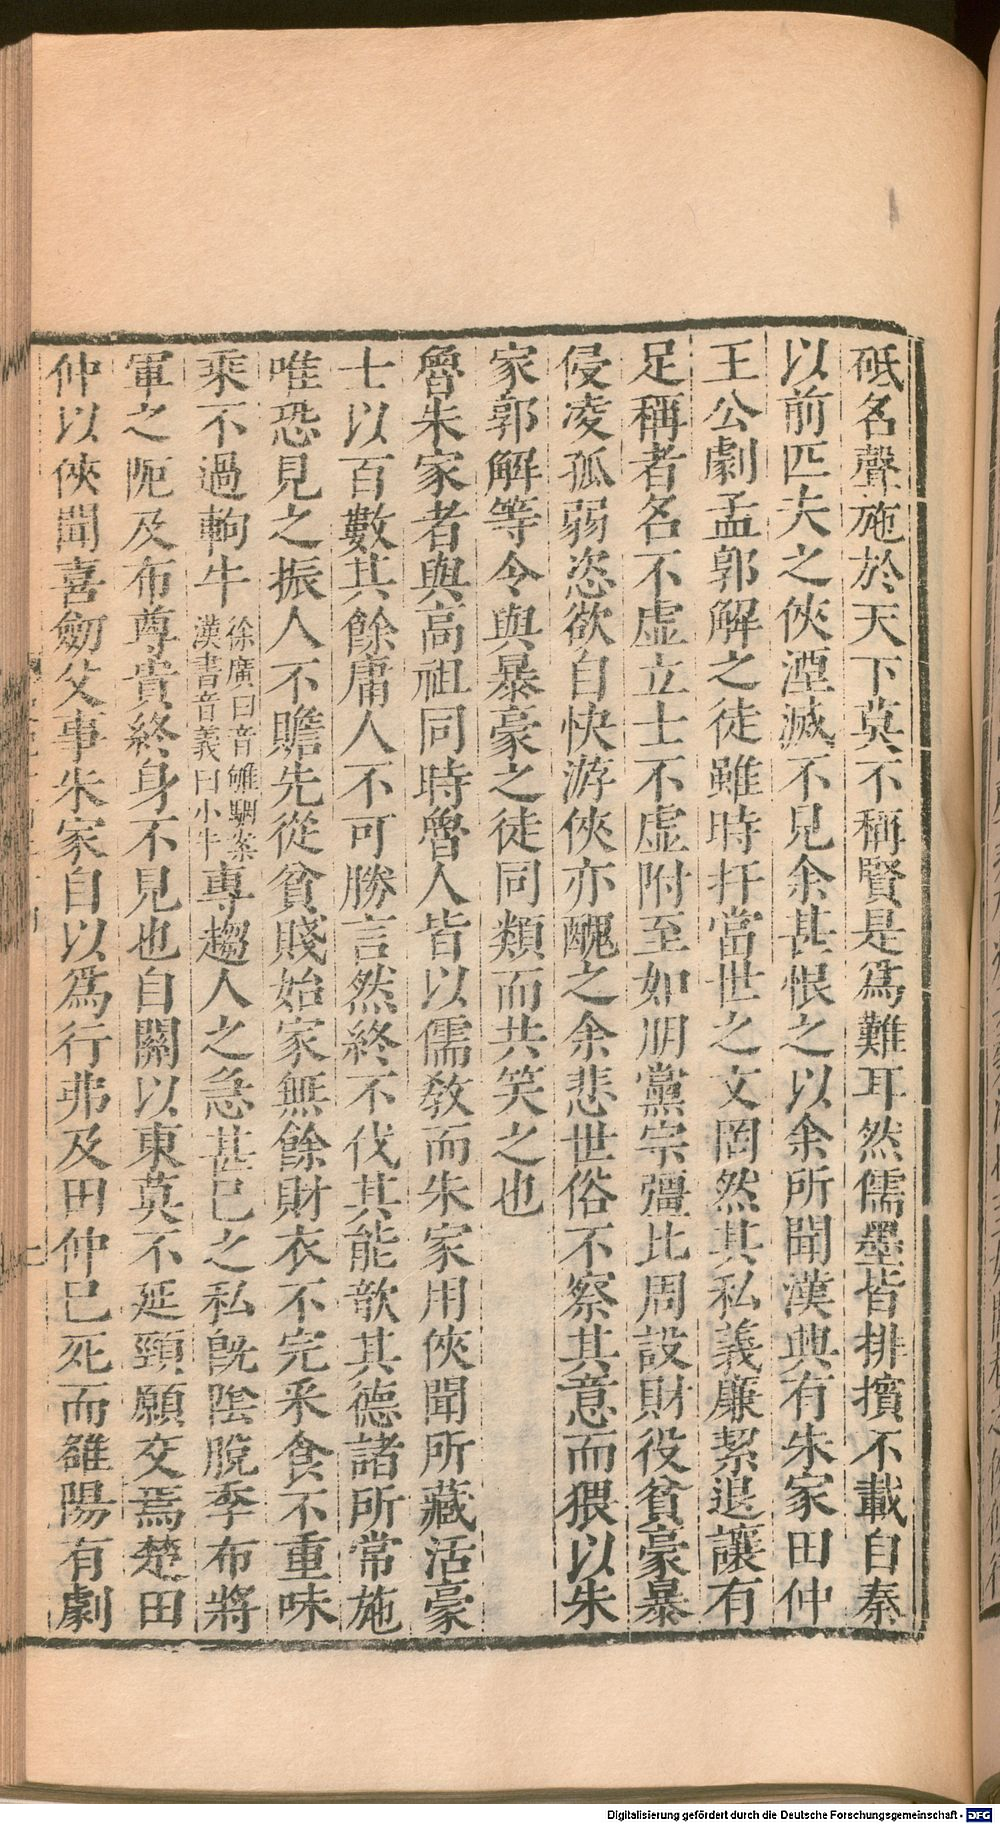 砥名聲施於天下莫不稱賢是爲難耳然儒墨皆排擯不載自秦
以前匹夫之俠湮滅不見余甚恨之以余所聞漢興有朱家田仲
王公劇孟郭解之徒雖時扞當世之文罔然其私義廉絜退讓有
足稱者名不虛立士不虛附至如朋黨宗彊比周設財役貧豪暴
侵凌孤弱恣欲自快游俠亦醜之余悲世俗不察其意而猥以朱
家郭解等令與暴豪之徒同類而共笑之也
魯朱家者與高祖同時魯人皆以儒教而朱家用俠聞所藏活豪
士以百數其餘庸人不可勝言然終不伐其能歆其德諸所常施
唯恐見之振人不贍先從貧賤始家無餘財衣不完采食不重味
乘不過軥牛徐廣曰音雊駰案漢書音義曰小牛專趨人之急甚已之私既陰脫季布將
軍之阨及布尊貴終身不見也自關以東莫不延頸願交焉楚田
仲以俠聞喜劒父事朱家自以爲行弗及田仲已死而雒陽有劇
Digitalisierung gefördert durch die Deutsche Forschungsgemeinschaft - DFG